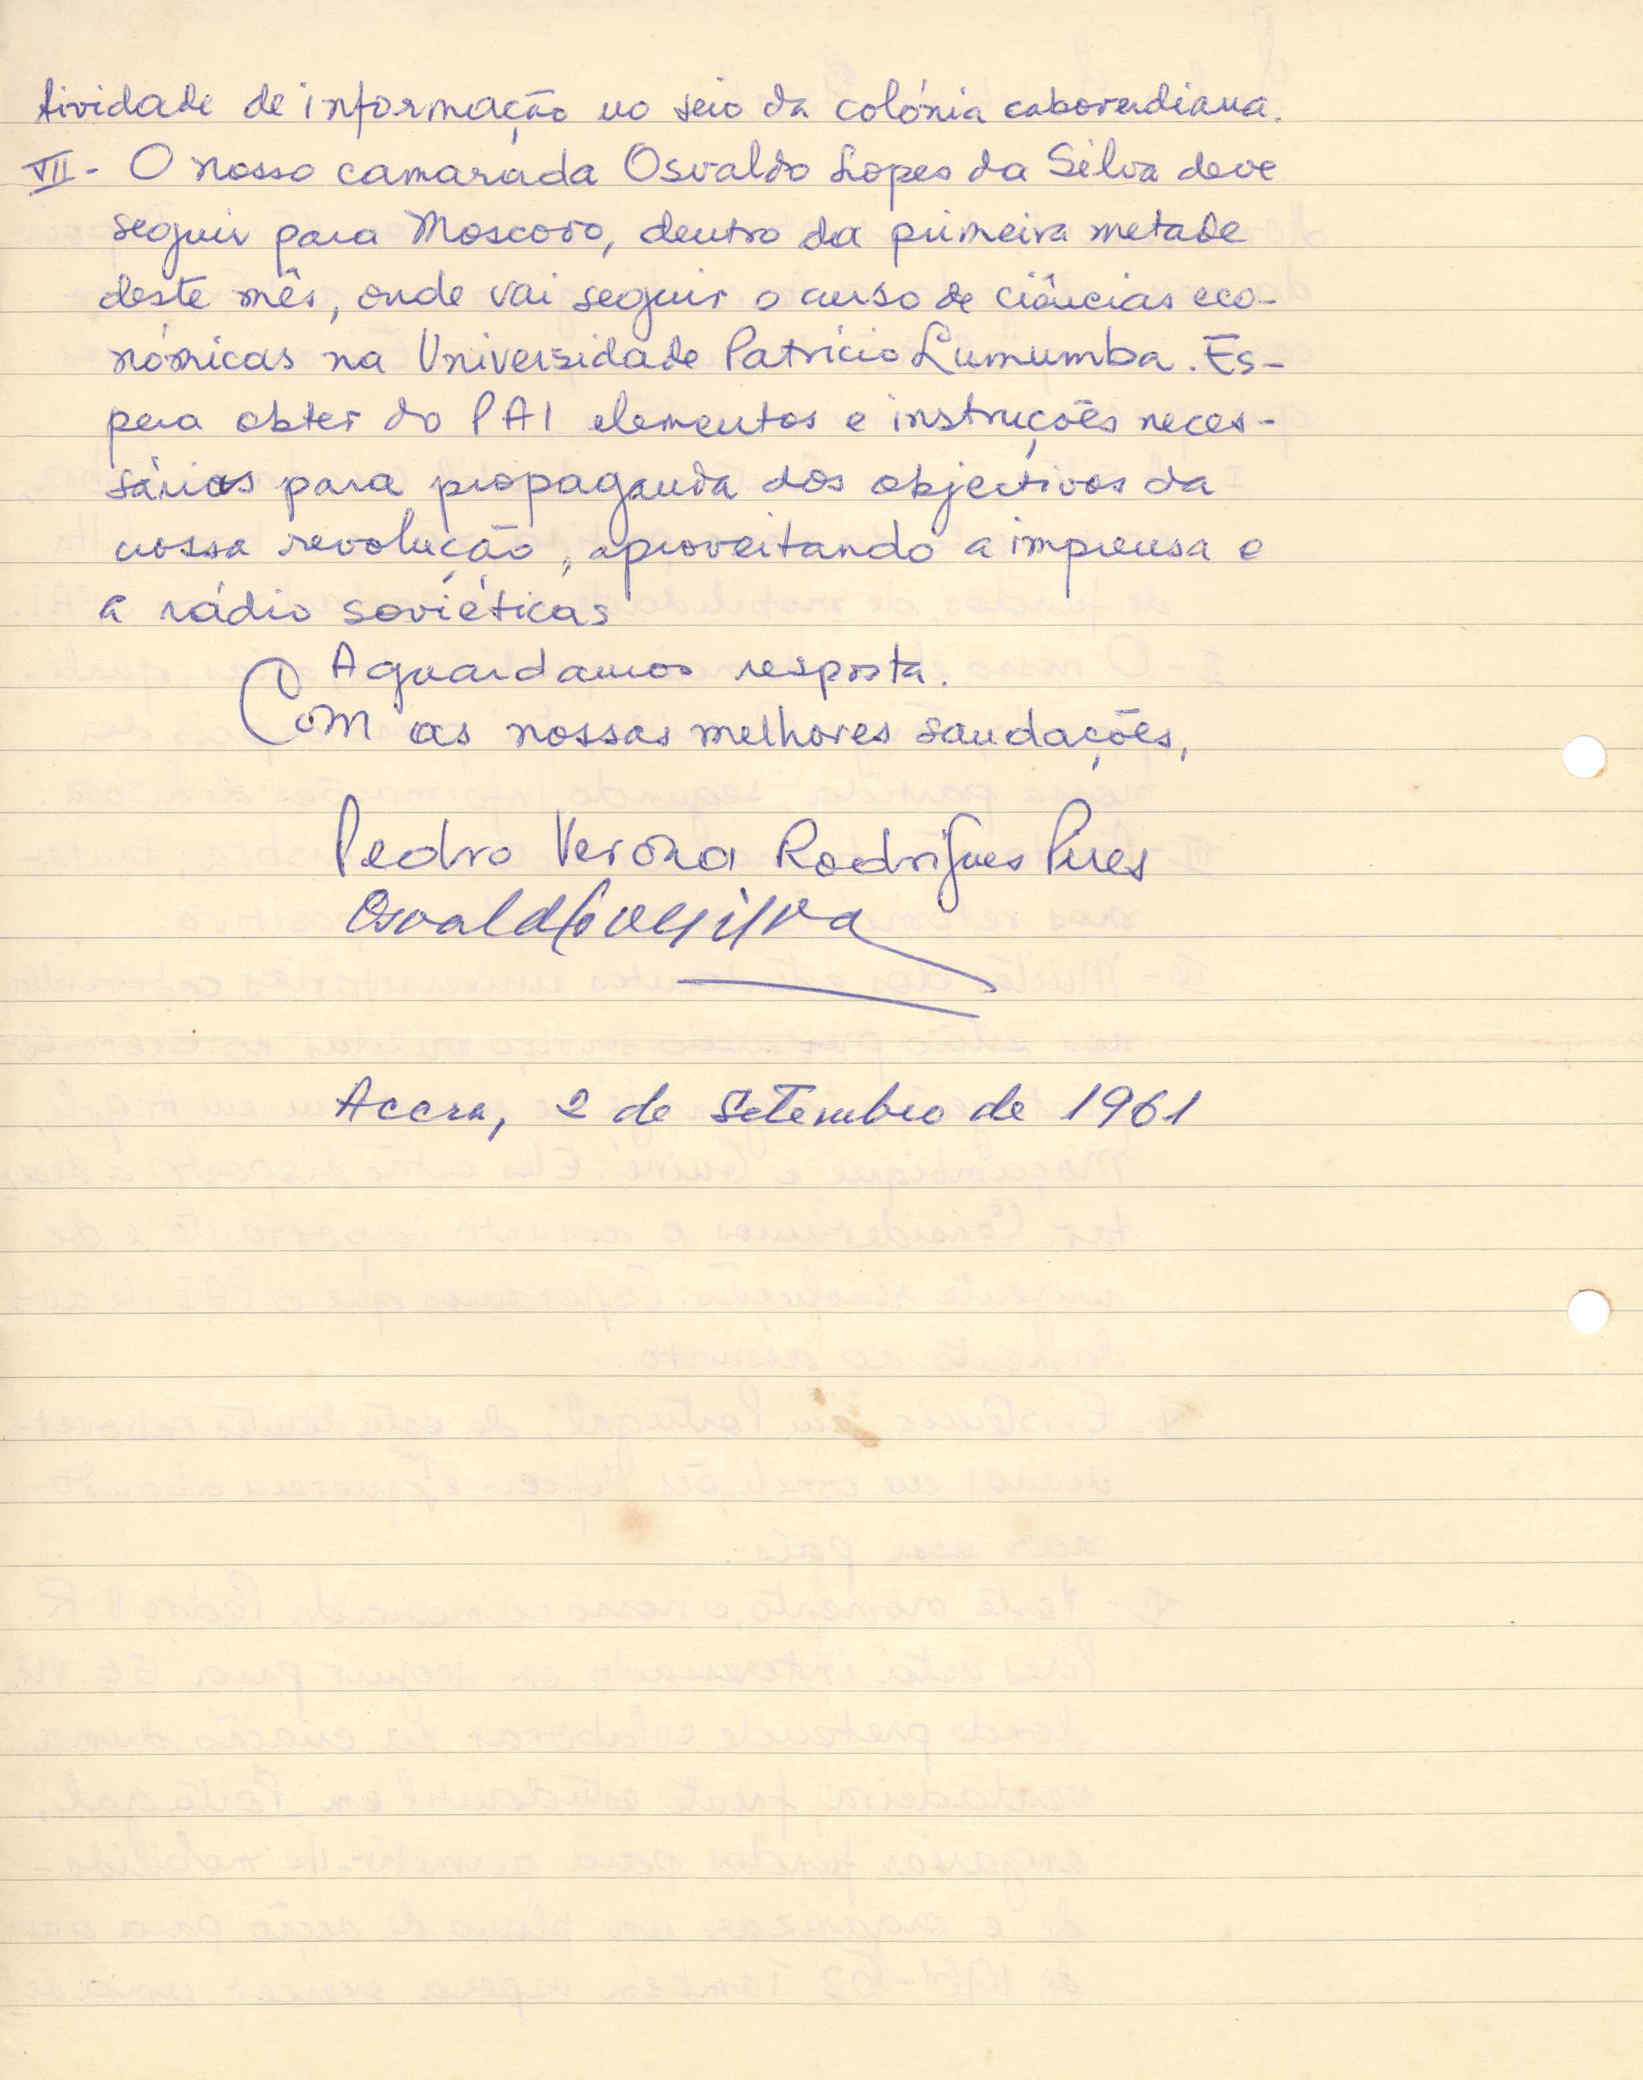 tividade de informação no seio da colónia caboverdiana.
VII - O nosso camarada Osvaldo Lopes da Silva deve
seguir para Moscovo, dentro da primeira metade
deste mês, onde vai seguir o curso de ciências eco-
nómicas na Universidade Patrício Lumumba. Es-
pera obter do PAI elementos e instruções neces-
sários para propaganda dos objectivos da
nossa revolução, aproveitando a imprensa e
a rádio soviéticas
Aguardamos resposta.
Com as nossas melhores saudações,
Pedro Verona Rodrigues Pires
Osvaldo Silva
Accra, 2 de Setembro de 1961